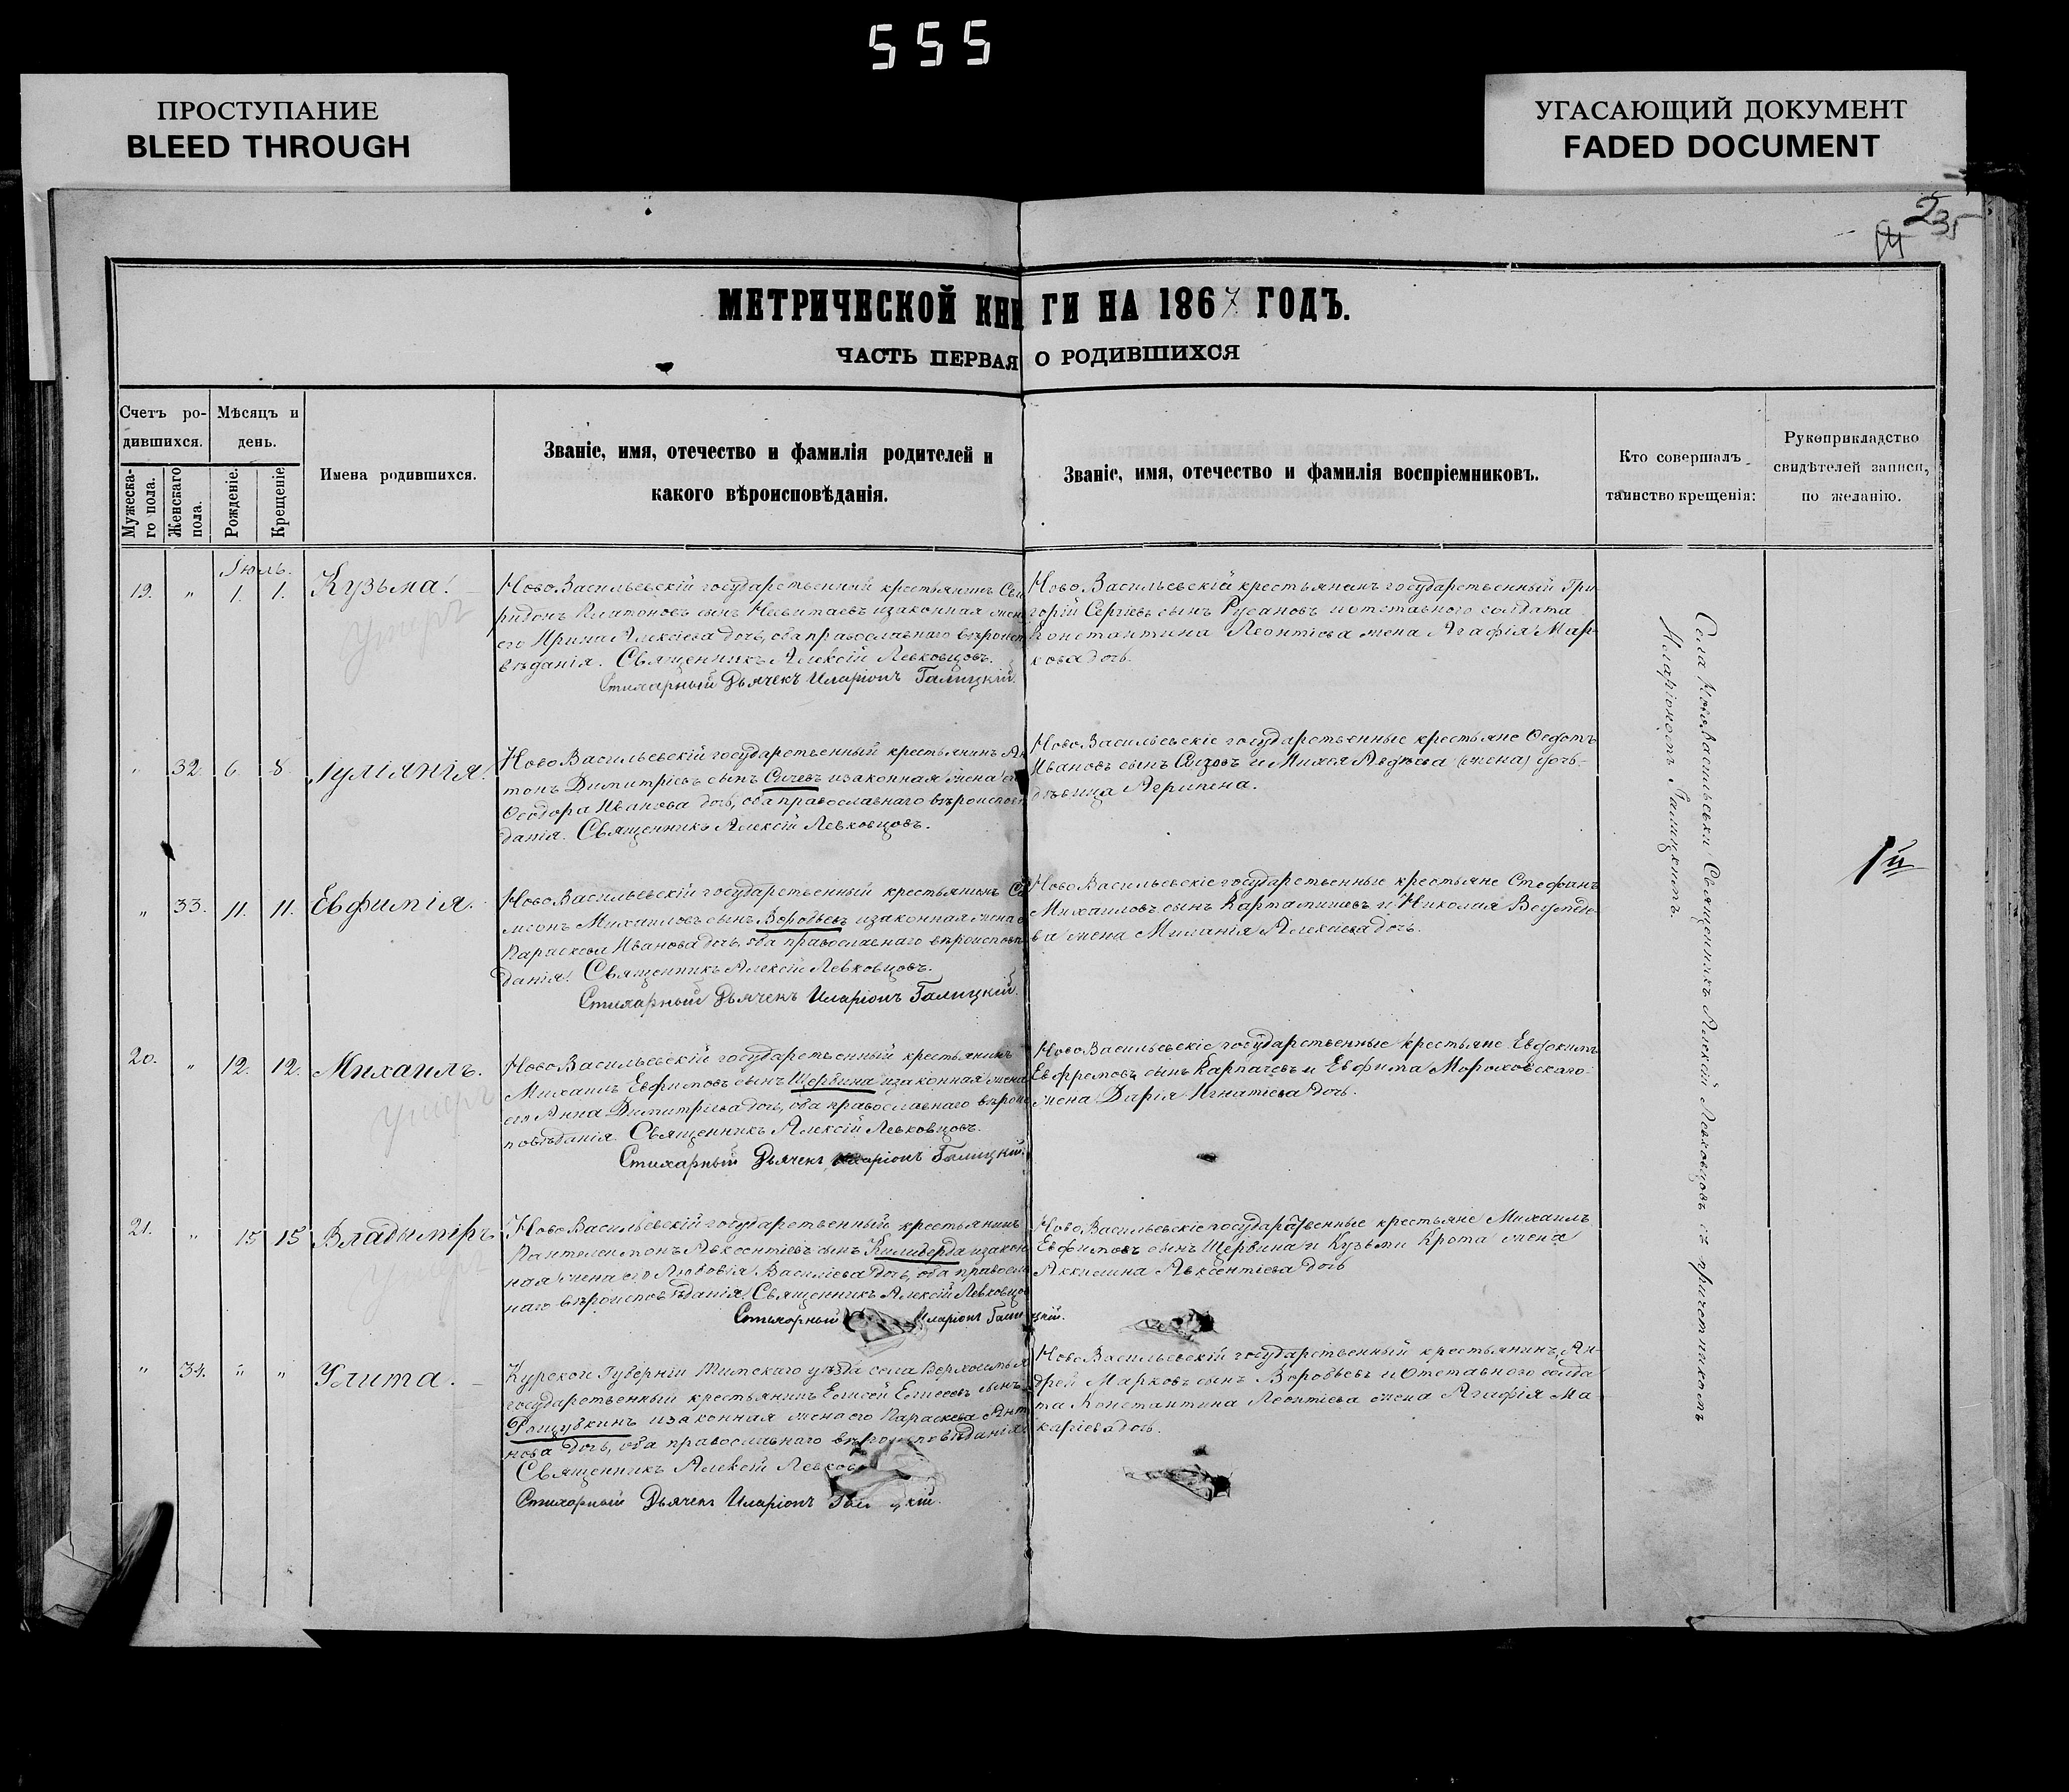 555
ПРОСТУПАНИЕ
BLEED THROUGH
УГАСАЮЩИЙ ДОКУМЕНТ
FADED DOCUMENT
235
МЕТРИЧЕСКОЙ КНИГИ НА 1867 ГОДЪ.
ЧАСТЬ ПЕРВАЯ О РОДИВШИХСЯ
Счетъ ро-
дившихся.
Мужеска-
го пола.
Женскаго
пола.
Мѣсяцъ и
день.
Рожденіе.
Крещеніе
Имена родившихся.
Званіе, имя, отечество и фамилія родителей и
какого вѣроисповѣданія.
Званіе, имя, отечество и фамилія воспріемниковъ.
Кто совершалъ
таинство крещенія:
Рукоприкладство
свидѣтелей записи,
по желанію.
Іюль.
19. " 1. 1. Кузьма.
Умеръ
НовоВасильевскій государственный крестьянинъ Сви
ридонъ Платоновъ сынъ изаконная жена
его Ирина Алексіева дочь, оба православнаго вѣроиспо
вѣданія. Священникъ Алексій Левковцовъ.
Стихарный Дьячекъ Иларіонъ Галицкій.
НовоВасильевскій крестьянинъ государственный Гри
горій Сергіевъ сынъ Русановъ и отставного солдата
Константина Леонтіева жена Агафія Мар-
кова дочь.
" 32. 6. 8. Іуліянія.
НовоВасильевскій государственный крестьянинъ Ан
тонъ Димитріевъ сынъ Сичевъ изаконная жена его
Ѳеодора Иванова дочь, оба православнаго вѣроисповѣ
данія. Священникъ Алексій Левковцовъ.
НовоВасильевскіе государственные крестьяне Ѳедотъ
Ивановъ сынъ Сизовъ и Авдѣева (жена) дочь-
дѣвица Агрипена.
" 33. 11. 11. Евфимія.
НовоВасильевскій государственный крестьянинъ Си
меонъ Михаиловъ сынъ Воробьевъ изаконная жена е
Параскева Иванова дочь, оба православнаго вѣроисповѣ
данія. Священникъ Алексій Левковцовъ.
Стихарный Дьячекъ Иларіонъ Галицкій.
НовоВасильевскіе государственные крестьяне Стефанъ
Михаиловъ сынъ Картамишевъ и Николая
ва жена Миланія Алексіева дочь.
20. " 12. 12. Михаилъ.
Умеръ
НовоВасильевскій государственный крестьянинъ
Михаилъ Евфимовъ сынъ Щербина изаконная жена
его Анна Димитріева дочь, оба православнаго вѣроис
повѣданія. Священникъ Алексій Левковцовъ.
Стихарный Дьячекъ Иларіонъ Галицкій.
НовоВасильевскіе государственные крестьяне Евдокимъ
Евфремовъ сынъ Карпачевъ и Евфима Мороховскаго
жена Дарія Игнатіева дочь.
21. " 15 15 Владиміръ
Умеръ
НовоВасильевскій государственный крестьянинъ
Пантелеимонъ Авксентіевъ сынъ Килиберда изакон
ная жена его Любовія Василіева дочь, оба правосла
наго вѣроисповѣданія. Священникъ Алексій Левковцо
Стихарный Иларіонъ Галицкій.
НовоВасильевскіе государственные крестьяне Михаилъ
Евфимовъ сынъ Щербина и Кузьми Крота жена
Авксентіева дочь
" 34. " " Улита.
Курской Губерніи Тимскаго уѣзда села
государственный крестьянинъ Елисей Елисеевъ сынъ
изаконная жена его Параскева Анто
нова дочь, оба православнаго вѣроисповѣданія
Священникъ Алексій Левков
Стихарный Дьячекъ Иларіонъ Галицкій.
НовоВасильевскій государственный крестьянинъ Ан-
дрей Марковъ сынъ Воробьевъ и Отставного солда
та Константина Леонтіева жена Агафія Ма
каріева дочь.
Села НовоВасильевки Священникъ Алексій Левковцовъ съ причетникомъ
Иларіономъ Галицкимъ.